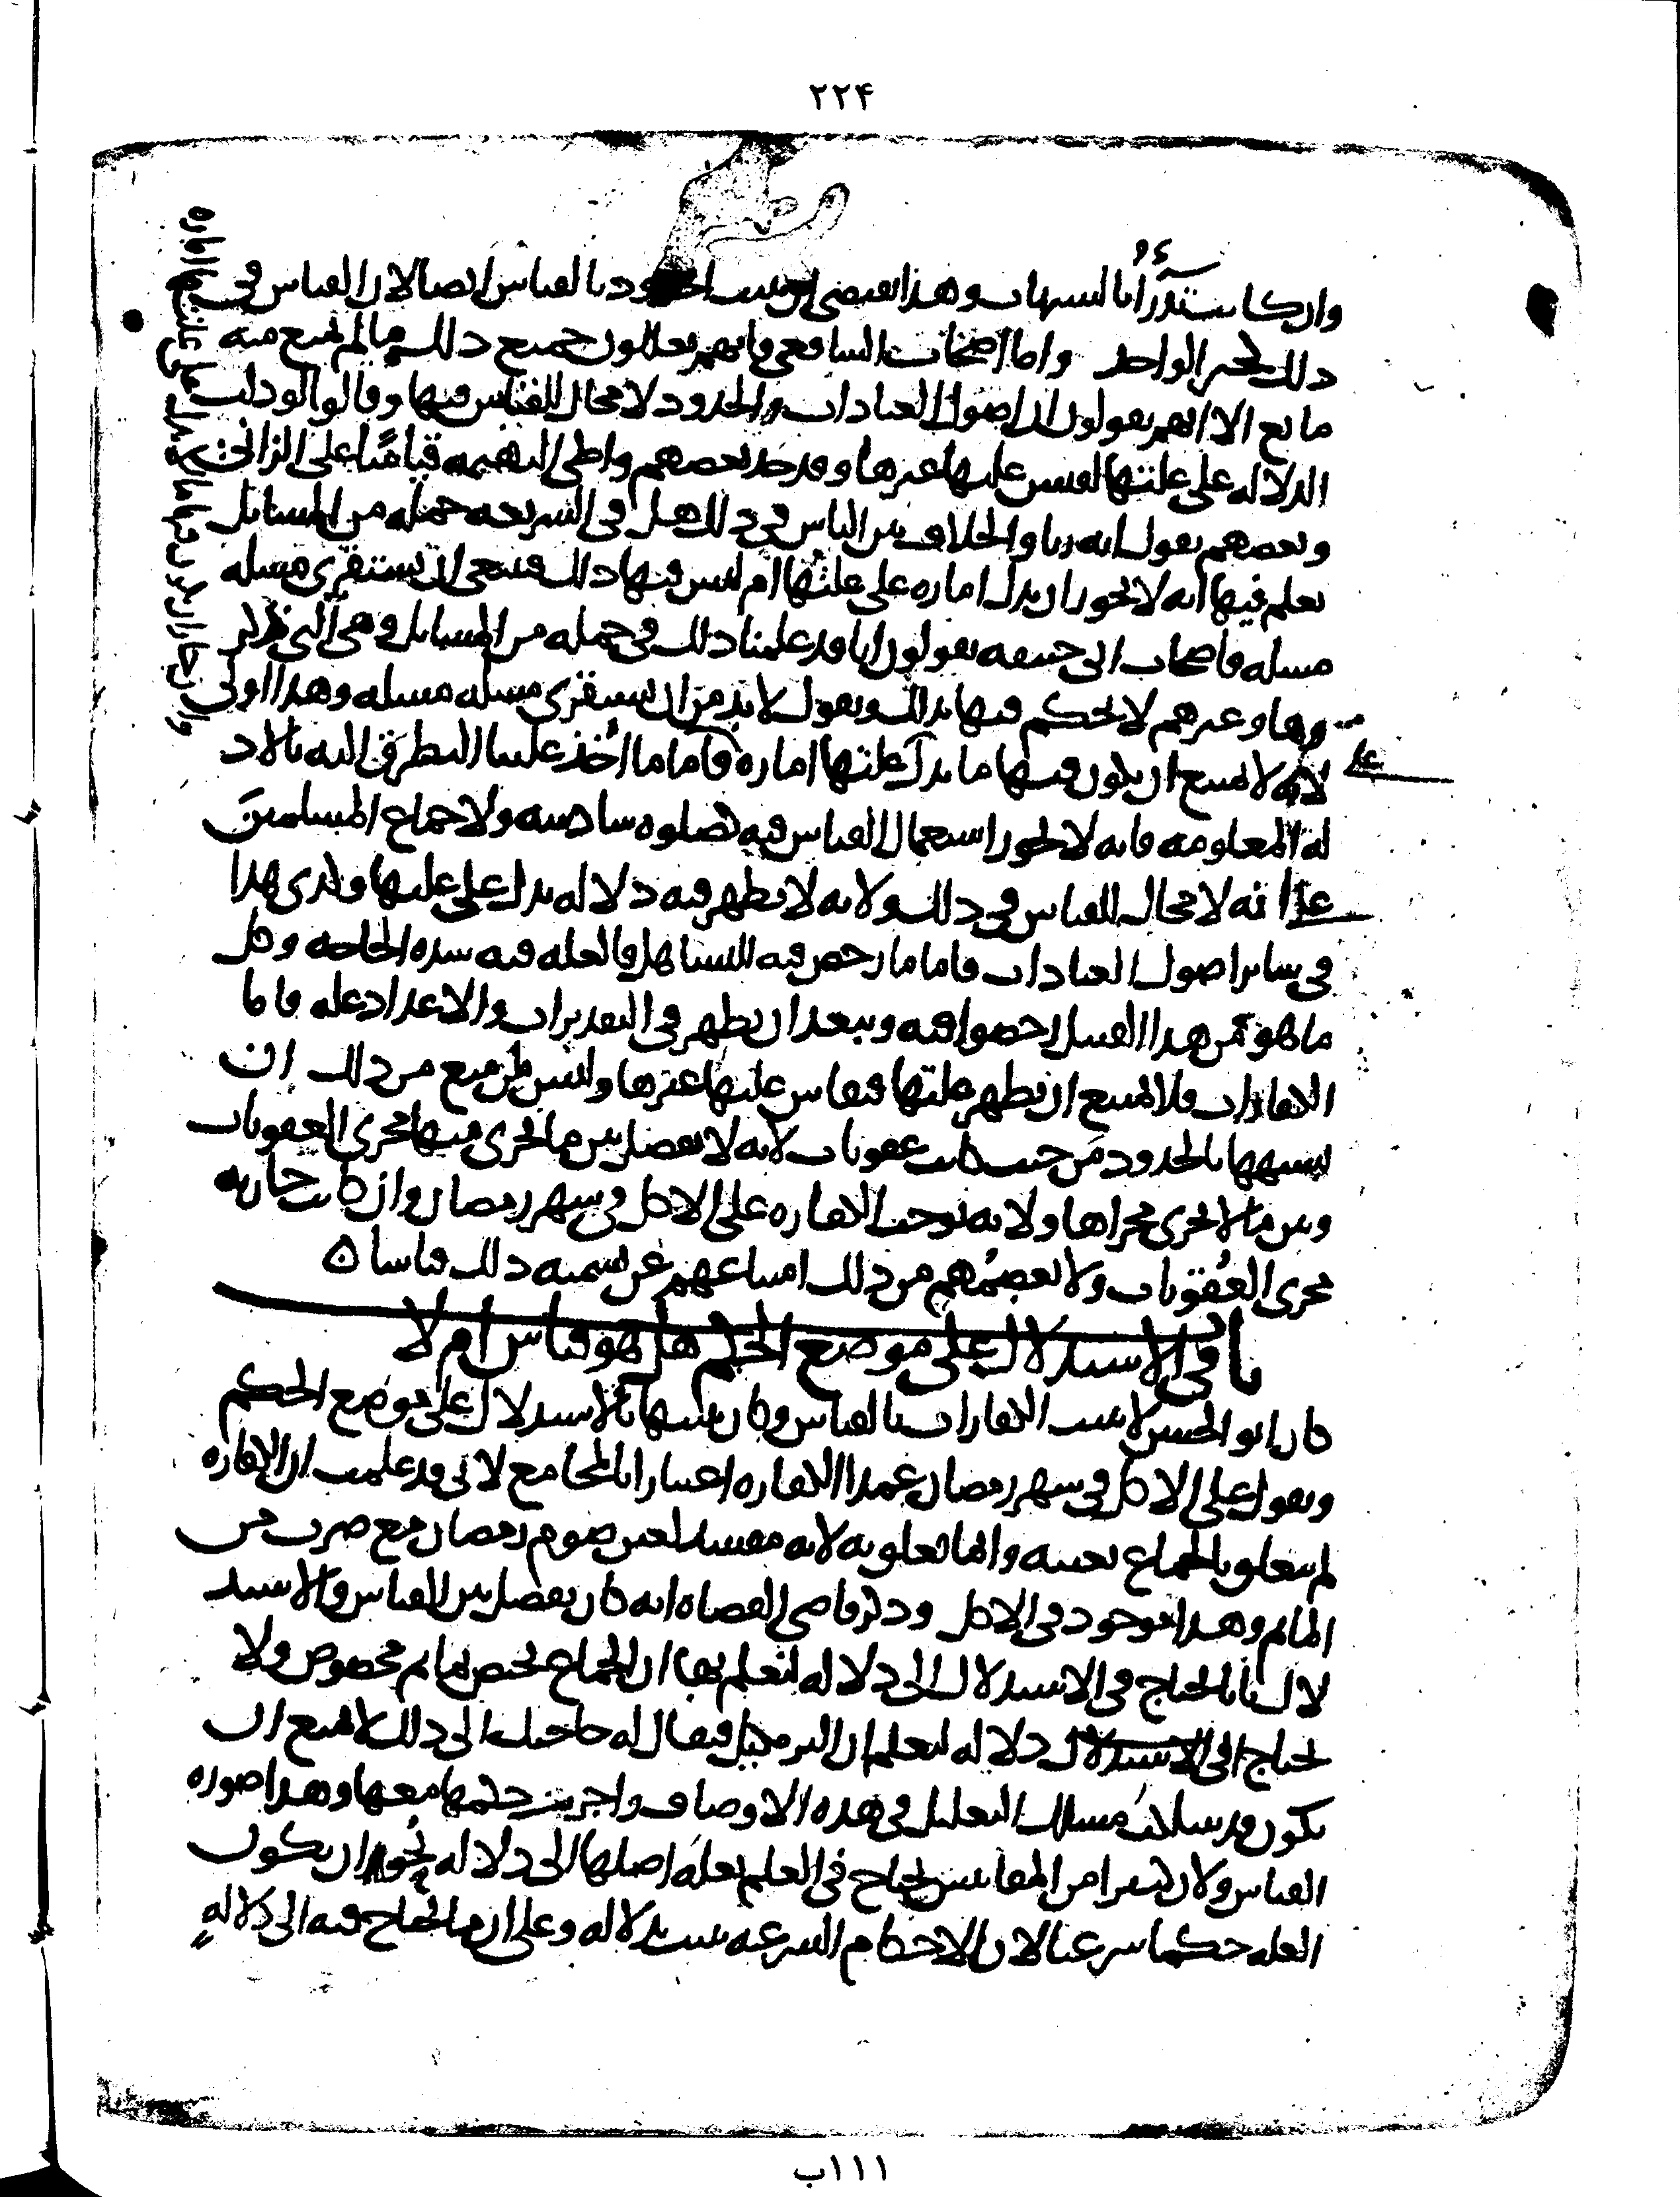 ٢٢۴
وان كانت تدرأ بالشبهات وهذا يقتضي ان يثبت الحدود بالقياس ايضا لان القياس في
ذلك كخبر الواحد واما اصحاب الشافعي فانهم يعللون جميع ذلك ما لم يمنع منه
مانع الا انهم يقولون ان اصول العبادات والحدود لا مجال للقياس فيها وقالوا لو دلت
الدلالة على علتها لقيس عليها غيرها وقد حد بعضهم واطي البهيمة قياسا على الزاني
وبعضهم يقول انه زنا والخلاف بين الناس في ذلك هل في الشريعة جملة من المسائل
نعلم فيها انه لا يجوز ان يدل امارة على علتها ام ليس فيها ذلك فينبغي ان يستقري مسلة
مسلة فاصحاب ابي حنيفة يقولون انا قد علمنا ذلك في جملة من المسائل وهي التي ذكر
وها وغيرهم لا يحكم فيها بذلك ويقول لا بد من ان يستقري مسلة مسلة وهذا اولى
لانه لا يمتنع ان يكون فيها ما يدل على علتها امارة فاما ما اخذ علينا التطرق اليه بالاد
له المعلومة فانه لا يجوز استعمال القياس فيه كصلوه سادسة ولاجماع المسلمين
على انه لا مجال للقياس في ذلك ولانه لا يظهر فيه دلالة يدل على علتها ولذى هذا
في سائر اصول العبادات فاما ما رخص فيه للتساهل فالعلة فيه شدة الحاجة وكل
ما هو من هذا القبيل رخصوا فيه ويبعد ان يظهر في التقديرات والاعداد علة فاما
الكفارات فلا يمتنع ان يظهر علتها فيقاس عليها غيرها وليس لمن منع من ذلك ان
يشبهها بالحدود من حيث كانت عقوبات لانه لا يفصل بين ما يجري منها مجرى العقوبات
وبين ما لا يجري مجراها ولانه يوجب الكفارة على الاكل في شهر رمضان وان كانت جارية
مجرى العقوبات ولا يعصمهم من ذلك امتناعهم عن تسمية ذلك قياسا ٥
باب في الاستدلال على موضع الحكم هل هو قياس ام لا
كان ابو الحسن لا يثبت الكفارات بالقياس وكان يثبتها بالاستدلال على موضع الحكم
ويقول على الاكل في شهر رمضان عمدا الكفارة اعتبارا بالمجامع لاني قد علمت ان الكفارة
لم يتعلق بالجماع بعينه وانما تعلق به لانه مفسد لعين صوم رمضان مع ضرب من
الماثم وهذا موجود في الاكل وذكر قاضي القضاة انه كان يفصل بين القياس والاستد
لال بانا نحتاج في الاستدلال الى دلالة لنعلم بها ان الجماع يختص بماثم مخصوص ولا
نحتاج الى دلالة لنعلم ان البر مكيل فيقال له حاجتك الى ذلك لا يمنع ان
تكون قد سلكت مسلك التعليل في هذه الاوصاف واجريت حكمها معها وهذا صورة
القياس ولان كثيرا من المقاييس يحتاج في العلم بعلة اصلها الى دلالة يجوز ان يكون
العلة حكما شرعيا لان الاحكام الشرعية تثبت بدلالة وعلى ان ما يحتاج فيه الى دلالة
١١١ب